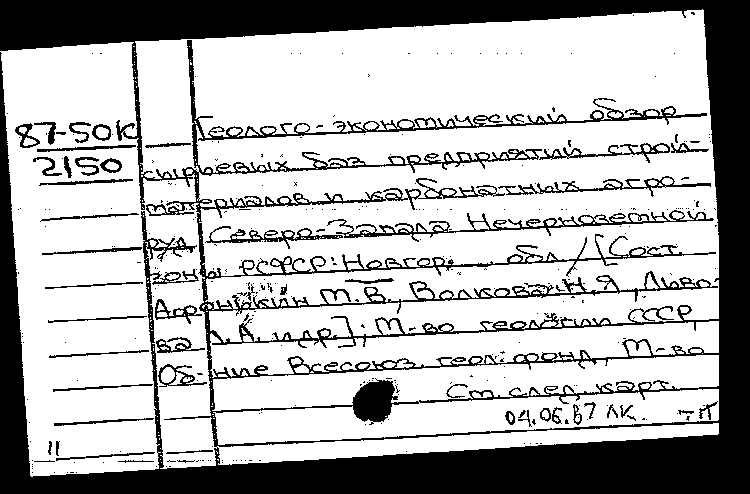 87-50К
2150
Геолого-экономический обзор
сырьевых баз предприятий строй-
материалов и карбонатных агро-
руд Северо-Запада Нечерноземной
зоны РСФСР: Новгор. обл / [Сост.
М.В., Волкова Н.Я, Льво-
ва Л.А. и др.]; М-во геологии СССР,
Об-ние Всесоюз. геол. фонд, М-во
Ст. след. карт.
04.06.87 ЛК.
11